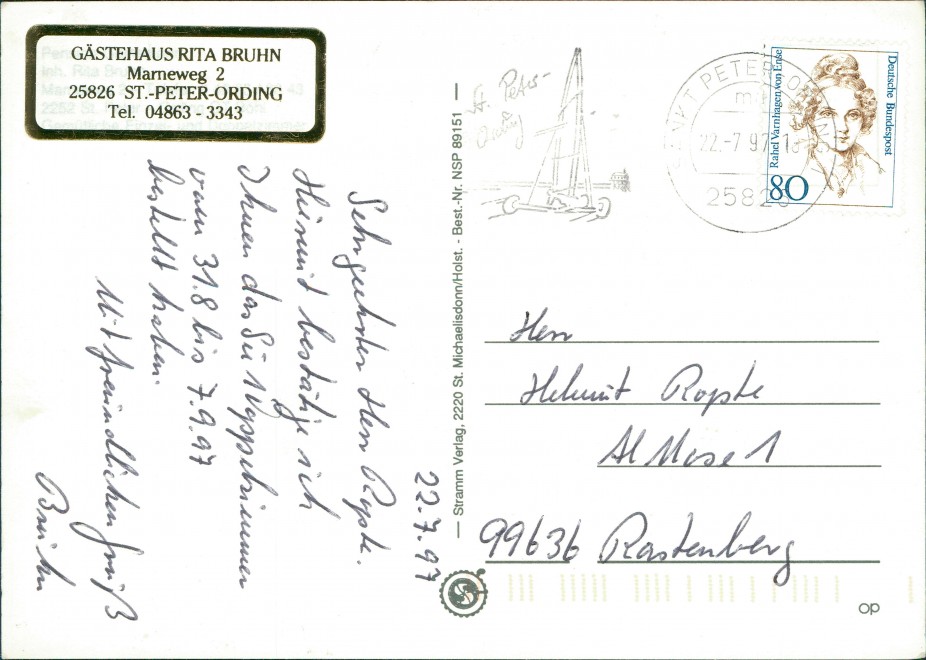 GÄSTEHAUS RITA BRUHN
Marneweg 2
25826 ST.-PETER-ORDING
Tel. 04863 - 3343
22.7.97
Sehrgeehrter Herr Ropte.
Hiermit bestätige ich
Ihnen das Sie 1 Doppelzimmer
vom 31.8 bis 7.9.97
bestellt haben.
Mit freundlichen Gruß
Bruhn
— Stramm Verlag, 2220 St. Michaelisdonn/Holst. - Best.-Nr. NSP 89151 —
St. Peter-
Ording
SANKT PETER-ORDING
22.-7.97-18
25826
Rahel Varnhagen von Ense
Deutsche Bundespost
80
Herr
Helmut Ropte
Al Mose 1
99636 Rastenberg
op